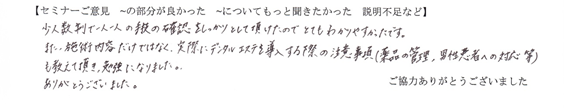 【セミナーご意見　~の部分が良かった　~についてもっと聞きたかった　説明不足など】
少人数制で一人一人の手技の確認をしっかりとして頂けたのでとてもわかりやすかったです。
また、施術内容だけではなく、実際にデンタルエステを導入する際の注意事項(薬品の管理、男性患者への対応 等)
も教えて頂き、勉強になりました。
ありがとうございました。
ご協力ありがとうございました